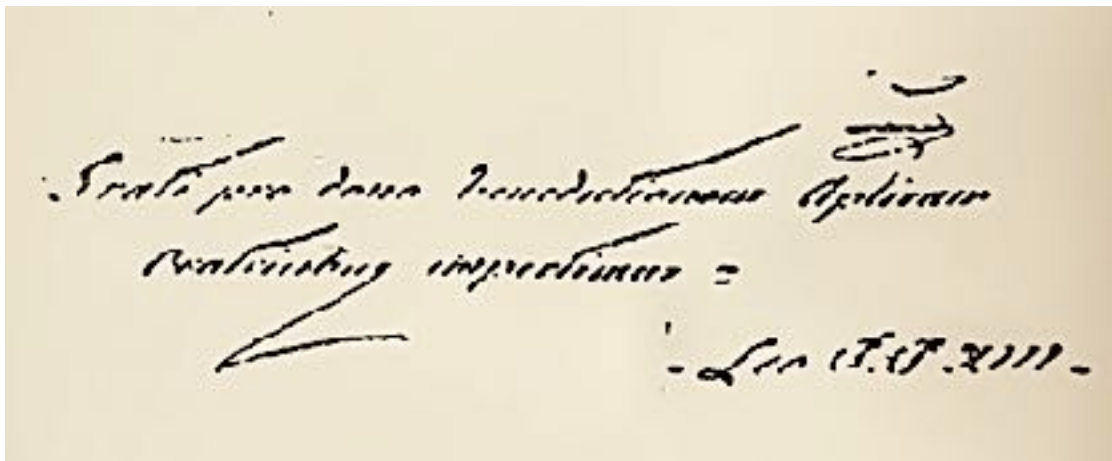 Grati pro dono benedictionem Aplicam
Oratricibus impertimur =
- Leo P.P. XIII -